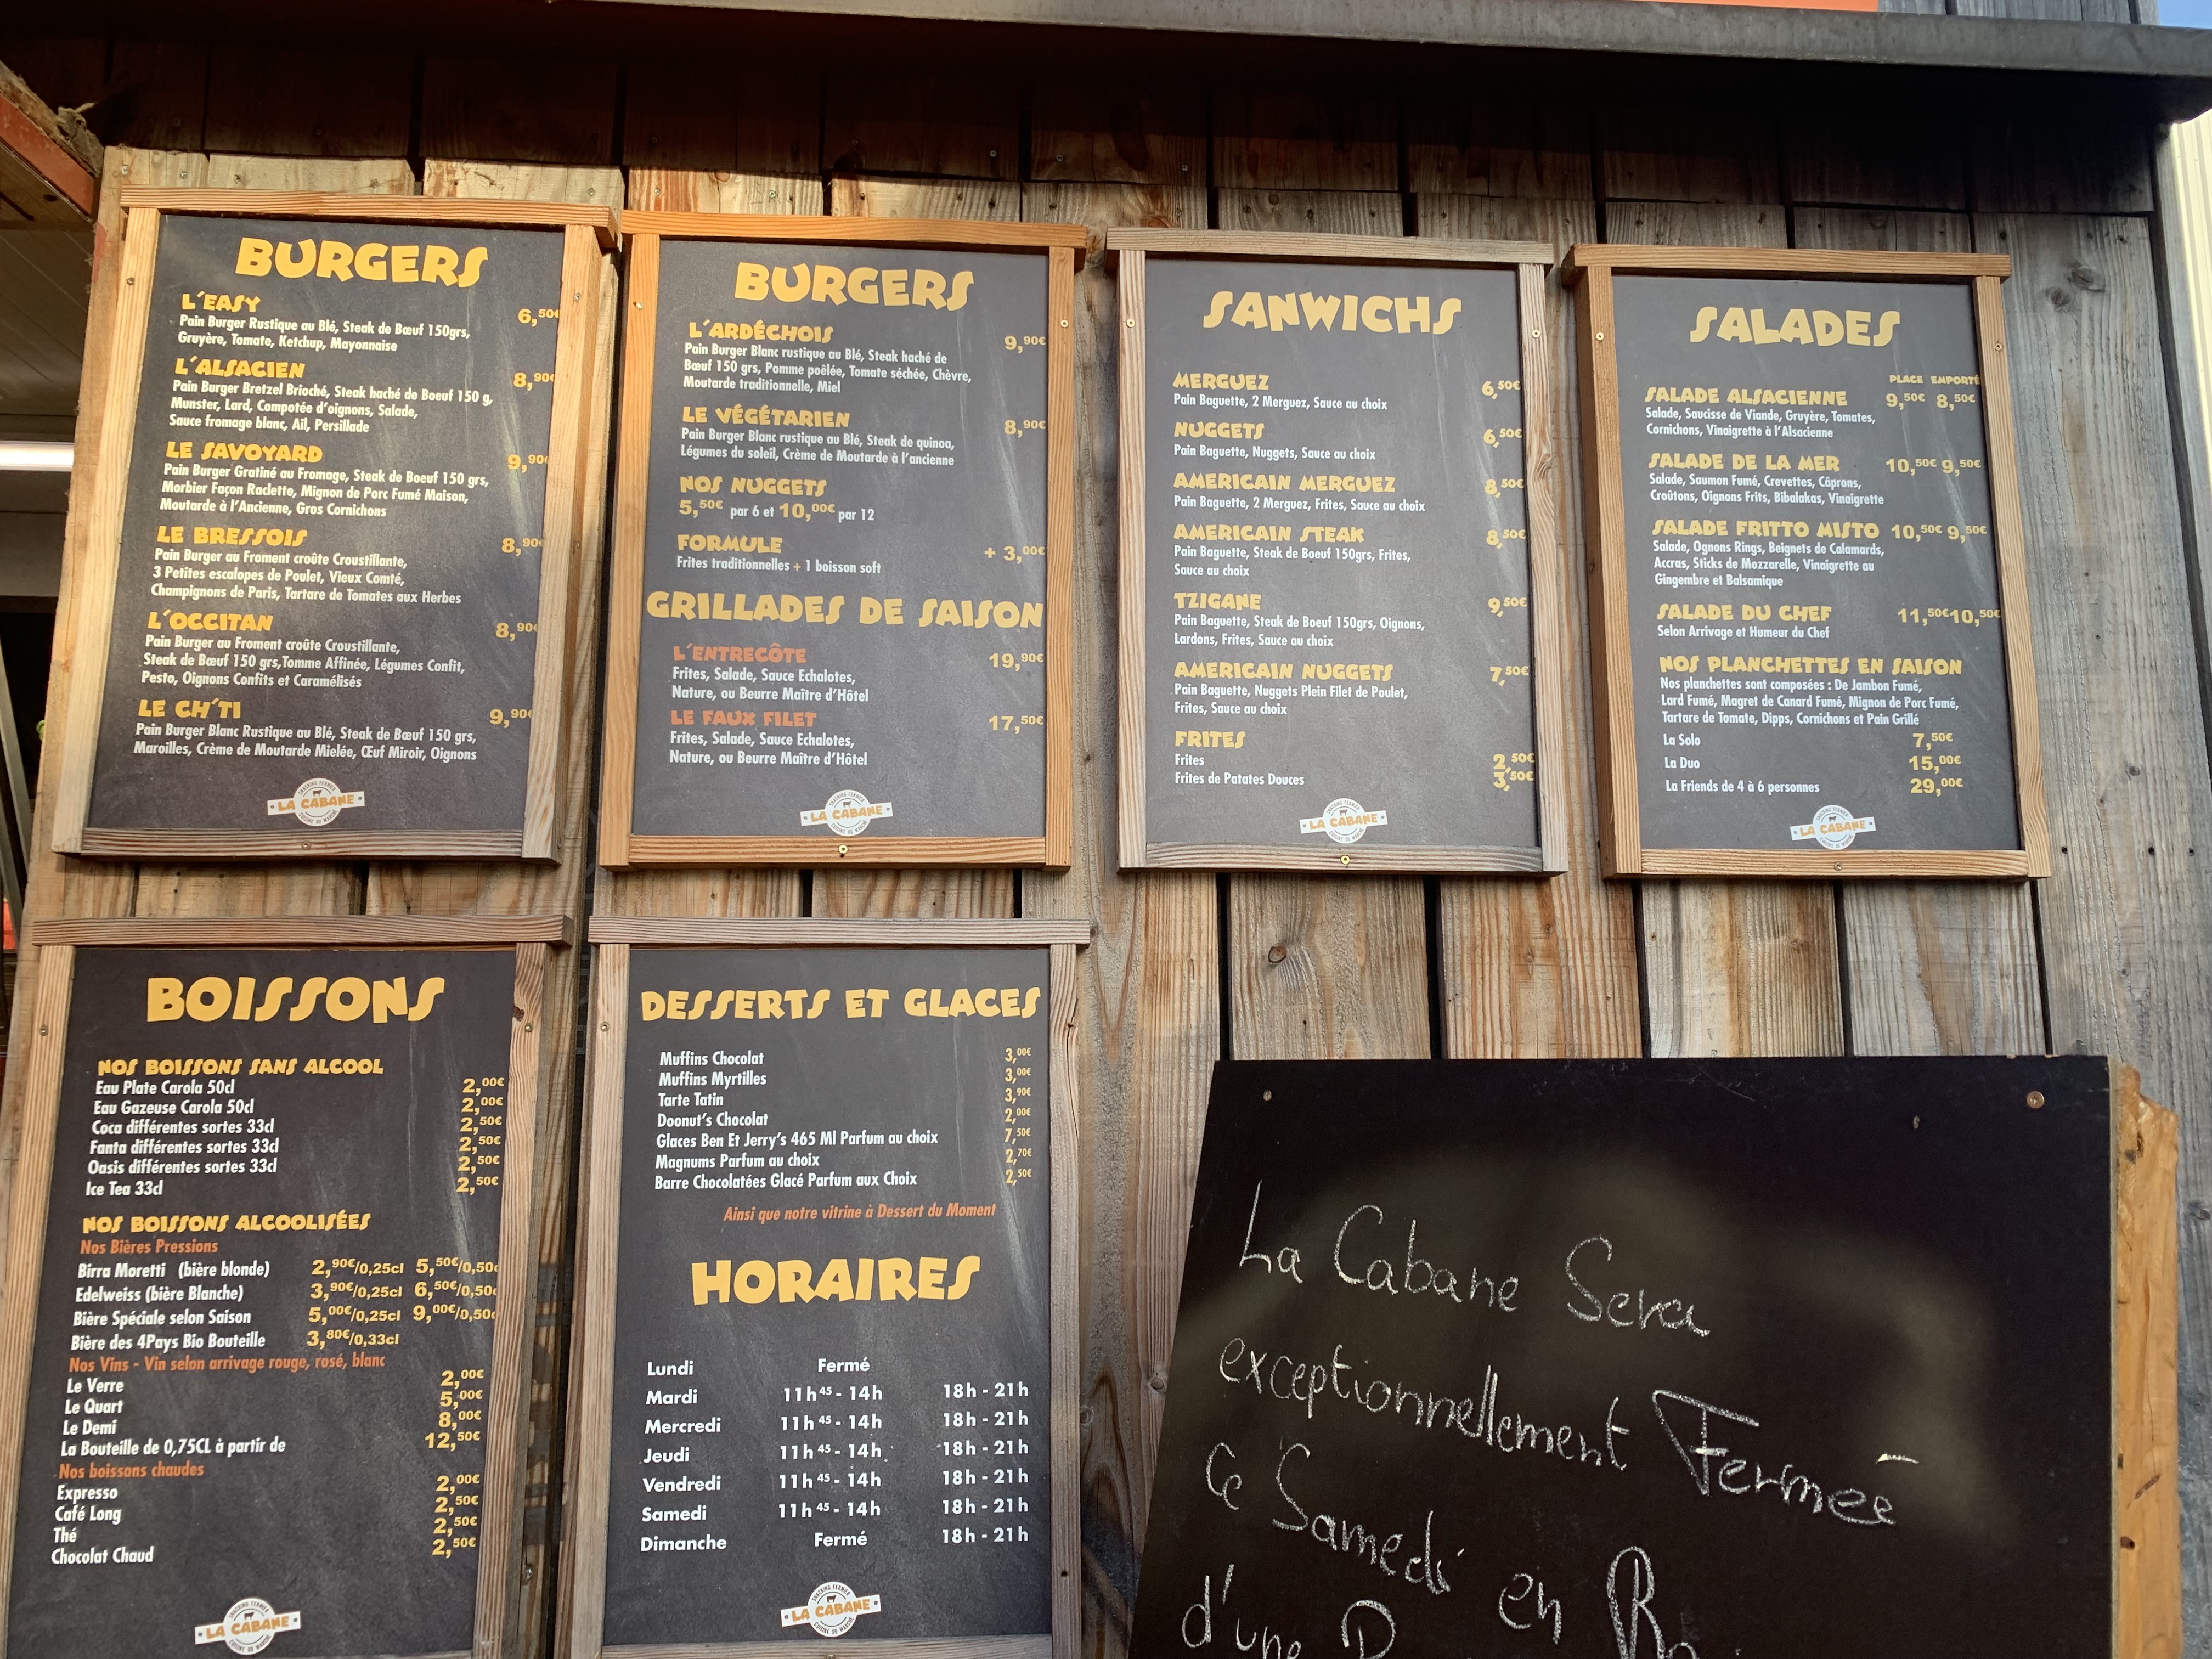 BURGERS
L'EASY 6,50€
Pain Burger Rustique au Blé, Steak de Bœuf 150grs,
Gruyère, Tomate, Ketchup, Mayonnaise
L'ALSACIEN 8,90€
Pain Burger Bretzel Brioché, Steak haché de Boeuf 150 g,
Munster, Lard, Compotée d'oignons, Salade,
Sauce fromage blanc, Ail, Persillade
LE SAVOYARD 9,90€
Pain Burger Gratiné au Fromage, Steak de Boeuf 150 grs,
Morbier Façon Raclette, Mignon de Porc Fumé Maison,
Moutarde à l'Ancienne, Gros Cornichons
LE BRESSOIS 8,90€
Pain Burger au Froment croûte Croustillante,
3 Petites escalopes de Poulet, Vieux Comté,
Champignons de Paris, Tartare de Tomates aux Herbes
L'OCCITAN 8,90€
Pain Burger au Froment croûte Croustillante,
Steak de Bœuf 150 grs,Tomme Affinée, Légumes Confit,
Pesto, Oignons Confits et Caramélisés
LE CH'TI 9,90€
Pain Burger Blanc Rustique au Blé, Steak de Bœuf 150 grs,
Maroilles, Crème de Moutarde Mielée, Œuf Miroir, Oignons
SNACKING FERMIER
LA CABANE
CUISINE DU MARCHÉ
BURGERS
L'ARDÉCHOIS 9,90€
Pain Burger Blanc rustique au Blé, Steak haché de
Bœuf 150 grs, Pomme poêlée, Tomate séchée, Chèvre,
Moutarde traditionnelle, Miel
LE VÉGÉTARIEN 8,90€
Pain Burger Blanc rustique au Blé, Steak de quinoa,
Légumes du soleil, Crème de Moutarde à l'ancienne
NOS NUGGETS
5,50€ par 6 et 10,00€ par 12
FORMULE + 3,00€
Frites traditionnelles + 1 boisson soft
GRILLADES DE SAISON
L'ENTRECÔTE 19,90€
Frites, Salade, Sauce Echalotes,
Nature, ou Beurre Maître d'Hôtel
LE FAUX FILET 17,50€
Frites, Salade, Sauce Echalotes,
Nature, ou Beurre Maître d'Hôtel
SNACKING FERMIER
LA CABANE
CUISINE DU MARCHÉ
SANWICHS
MERGUEZ 6,50€
Pain Baguette, 2 Merguez, Sauce au choix
NUGGETS 6,50€
Pain Baguette, Nuggets, Sauce au choix
AMERICAIN MERGUEZ 8,50€
Pain Baguette, 2 Merguez, Frites, Sauce au choix
AMERICAIN STEAK 8,50€
Pain Baguette, Steak de Boeuf 150grs, Frites,
Sauce au choix
TZIGANE 9,50€
Pain Baguette, Steak de Boeuf 150grs, Oignons,
Lardons, Frites, Sauce au choix
AMERICAIN NUGGETS 7,50€
Pain Baguette, Nuggets Plein Filet de Poulet,
Frites, Sauce au choix
FRITES
Frites 2,50€
Frites de Patates Douces 3,50€
SNACKING FERMIER
LA CABANE
CUISINE DU MARCHÉ
SALADES
PLACE EMPORTÉ
SALADE ALSACIENNE 9,50€ 8,50€
Salade, Saucisse de Viande, Gruyère, Tomates,
Cornichons, Vinaigrette à l'Alsacienne
SALADE DE LA MER 10,50€ 9,50€
Salade, Saumon Fumé, Crevettes, Câprons,
Croûtons, Oignons Frits, Bibalakas, Vinaigrette
SALADE FRITTO MISTO 10,50€ 9,50€
Salade, Ognons Rings, Beignets de Calamards,
Accras, Sticks de Mozzarelle, Vinaigrette au
Gingembre et Balsamique
SALADE DU CHEF 11,50€ 10,50€
Selon Arrivage et Humeur du Chef
NOS PLANCHETTES EN SAISON
Nos planchettes sont composées : De Jambon Fumé,
Lard Fumé, Magret de Canard Fumé, Mignon de Porc Fumé,
Tartare de Tomate, Dipps, Cornichons et Pain Grillé
La Solo 7,50€
La Duo 15,00€
La Friends de 4 à 6 personnes 29,00€
SNACKING FERMIER
LA CABANE
CUISINE DU MARCHÉ
BOISSONS
NOS BOISSONS SANS ALCOOL
Eau Plate Carola 50cl 2,00€
Eau Gazeuse Carola 50cl 2,00€
Coca différentes sortes 33cl 2,50€
Fanta différentes sortes 33cl 2,50€
Oasis différentes sortes 33cl 2,50€
Ice Tea 33cl 2,50€
NOS BOISSONS ALCOOLISÉES
Nos Bières Pressions
Birra Moretti (bière blonde) 2,90€/0,25cl 5,50€/0,50c
Edelweiss (bière Blanche) 3,90€/0,25cl 6,50€/0,50c
Bière Spéciale selon Saison 5,00€/0,25cl 9,00€/0,50c
Bière des 4Pays Bio Bouteille 3,80€/0,33cl
Nos Vins - Vin selon arrivage rouge, rosé, blanc
Le Verre 2,00€
Le Quart 5,00€
Le Demi 8,00€
La Bouteille de 0,75CL à partir de 12,50€
Nos boissons chaudes
Expresso 2,00€
Café Long 2,50€
Thé 2,50€
Chocolat Chaud 2,50€
SNACKING FERMIER
LA CABANE
CUISINE DU MARCHÉ
DESSERTS ET GLACES
Muffins Chocolat 3,00€
Muffins Myrtilles 3,00€
Tarte Tatin 3,90€
Doonut's Chocolat 2,00€
Glaces Ben Et Jerry's 465 Ml Parfum au choix 7,50€
Magnums Parfum au choix 2,70€
Barre Chocolatées Glacé Parfum aux Choix 2,50€
Ainsi que notre vitrine à Dessert du Moment
HORAIRES
Lundi Fermé
Mardi 11h45 - 14h 18h - 21h
Mercredi 11h45 - 14h 18h - 21h
Jeudi 11h45 - 14h 18h - 21h
Vendredi 11h45 - 14h 18h - 21h
Samedi 11h45 - 14h 18h - 21h
Dimanche Fermé 18h - 21h
SNACKING FERMIER
LA CABANE
CUISINE DU MARCHÉ
La Cabane Sera
exceptionnellement Fermée
Ce Samedi en
d'une